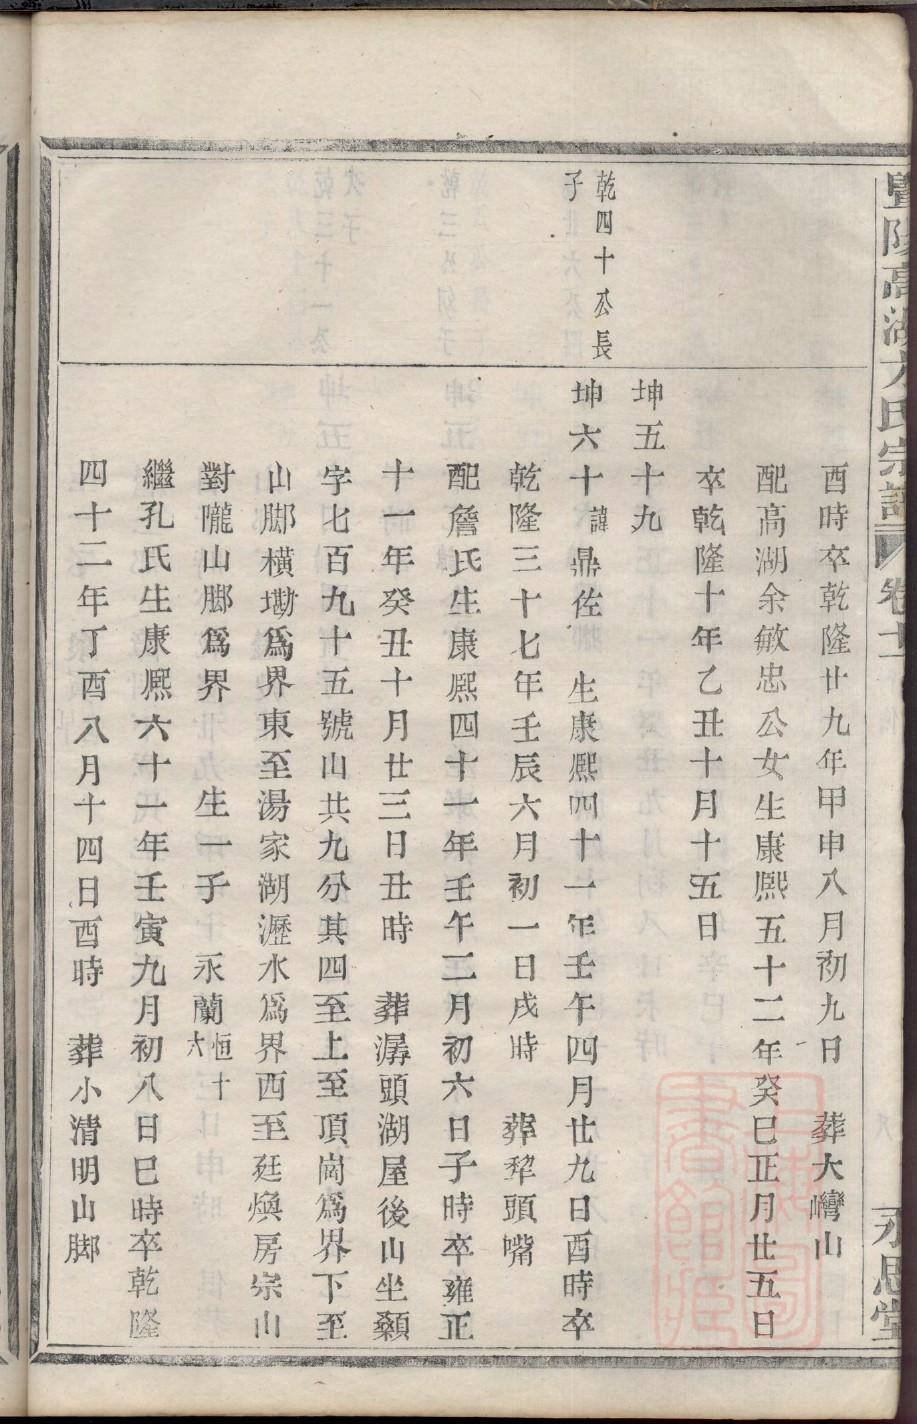 暨陽高湖方氏宗譜 卷十 永思堂
酉時卒乾隆廿九年甲申八月初九日 葬大巒山
配高湖余敏忠公女生康熙五十二年癸巳正月廿五日
卒乾隆十年乙丑十月十五日
坤五十九
乾四十公長
子
坤六十 諱鼎佐 生康熙四十一年壬午四月廿九日酉時卒
乾隆三十七年壬辰六月初一日戌時 葬犂頭嘴
配詹氏生康熙四十一年壬午二月初六日子時卒雍正
十一年癸丑十月廿三日丑時 葬潺頭湖屋後山坐顙
字七百九十五號山共九分其四至上至頂崗爲界下至
山脚橫墈爲界東至湯家湖瀝水爲界西至廷煥房宗山
對隴山脚爲界 生一子 永蘭 恒十六
繼孔氏生康熙六十一年壬寅九月初八日巳時卒乾隆
四十二年丁酉八月十四日酉時 葬小清明山脚